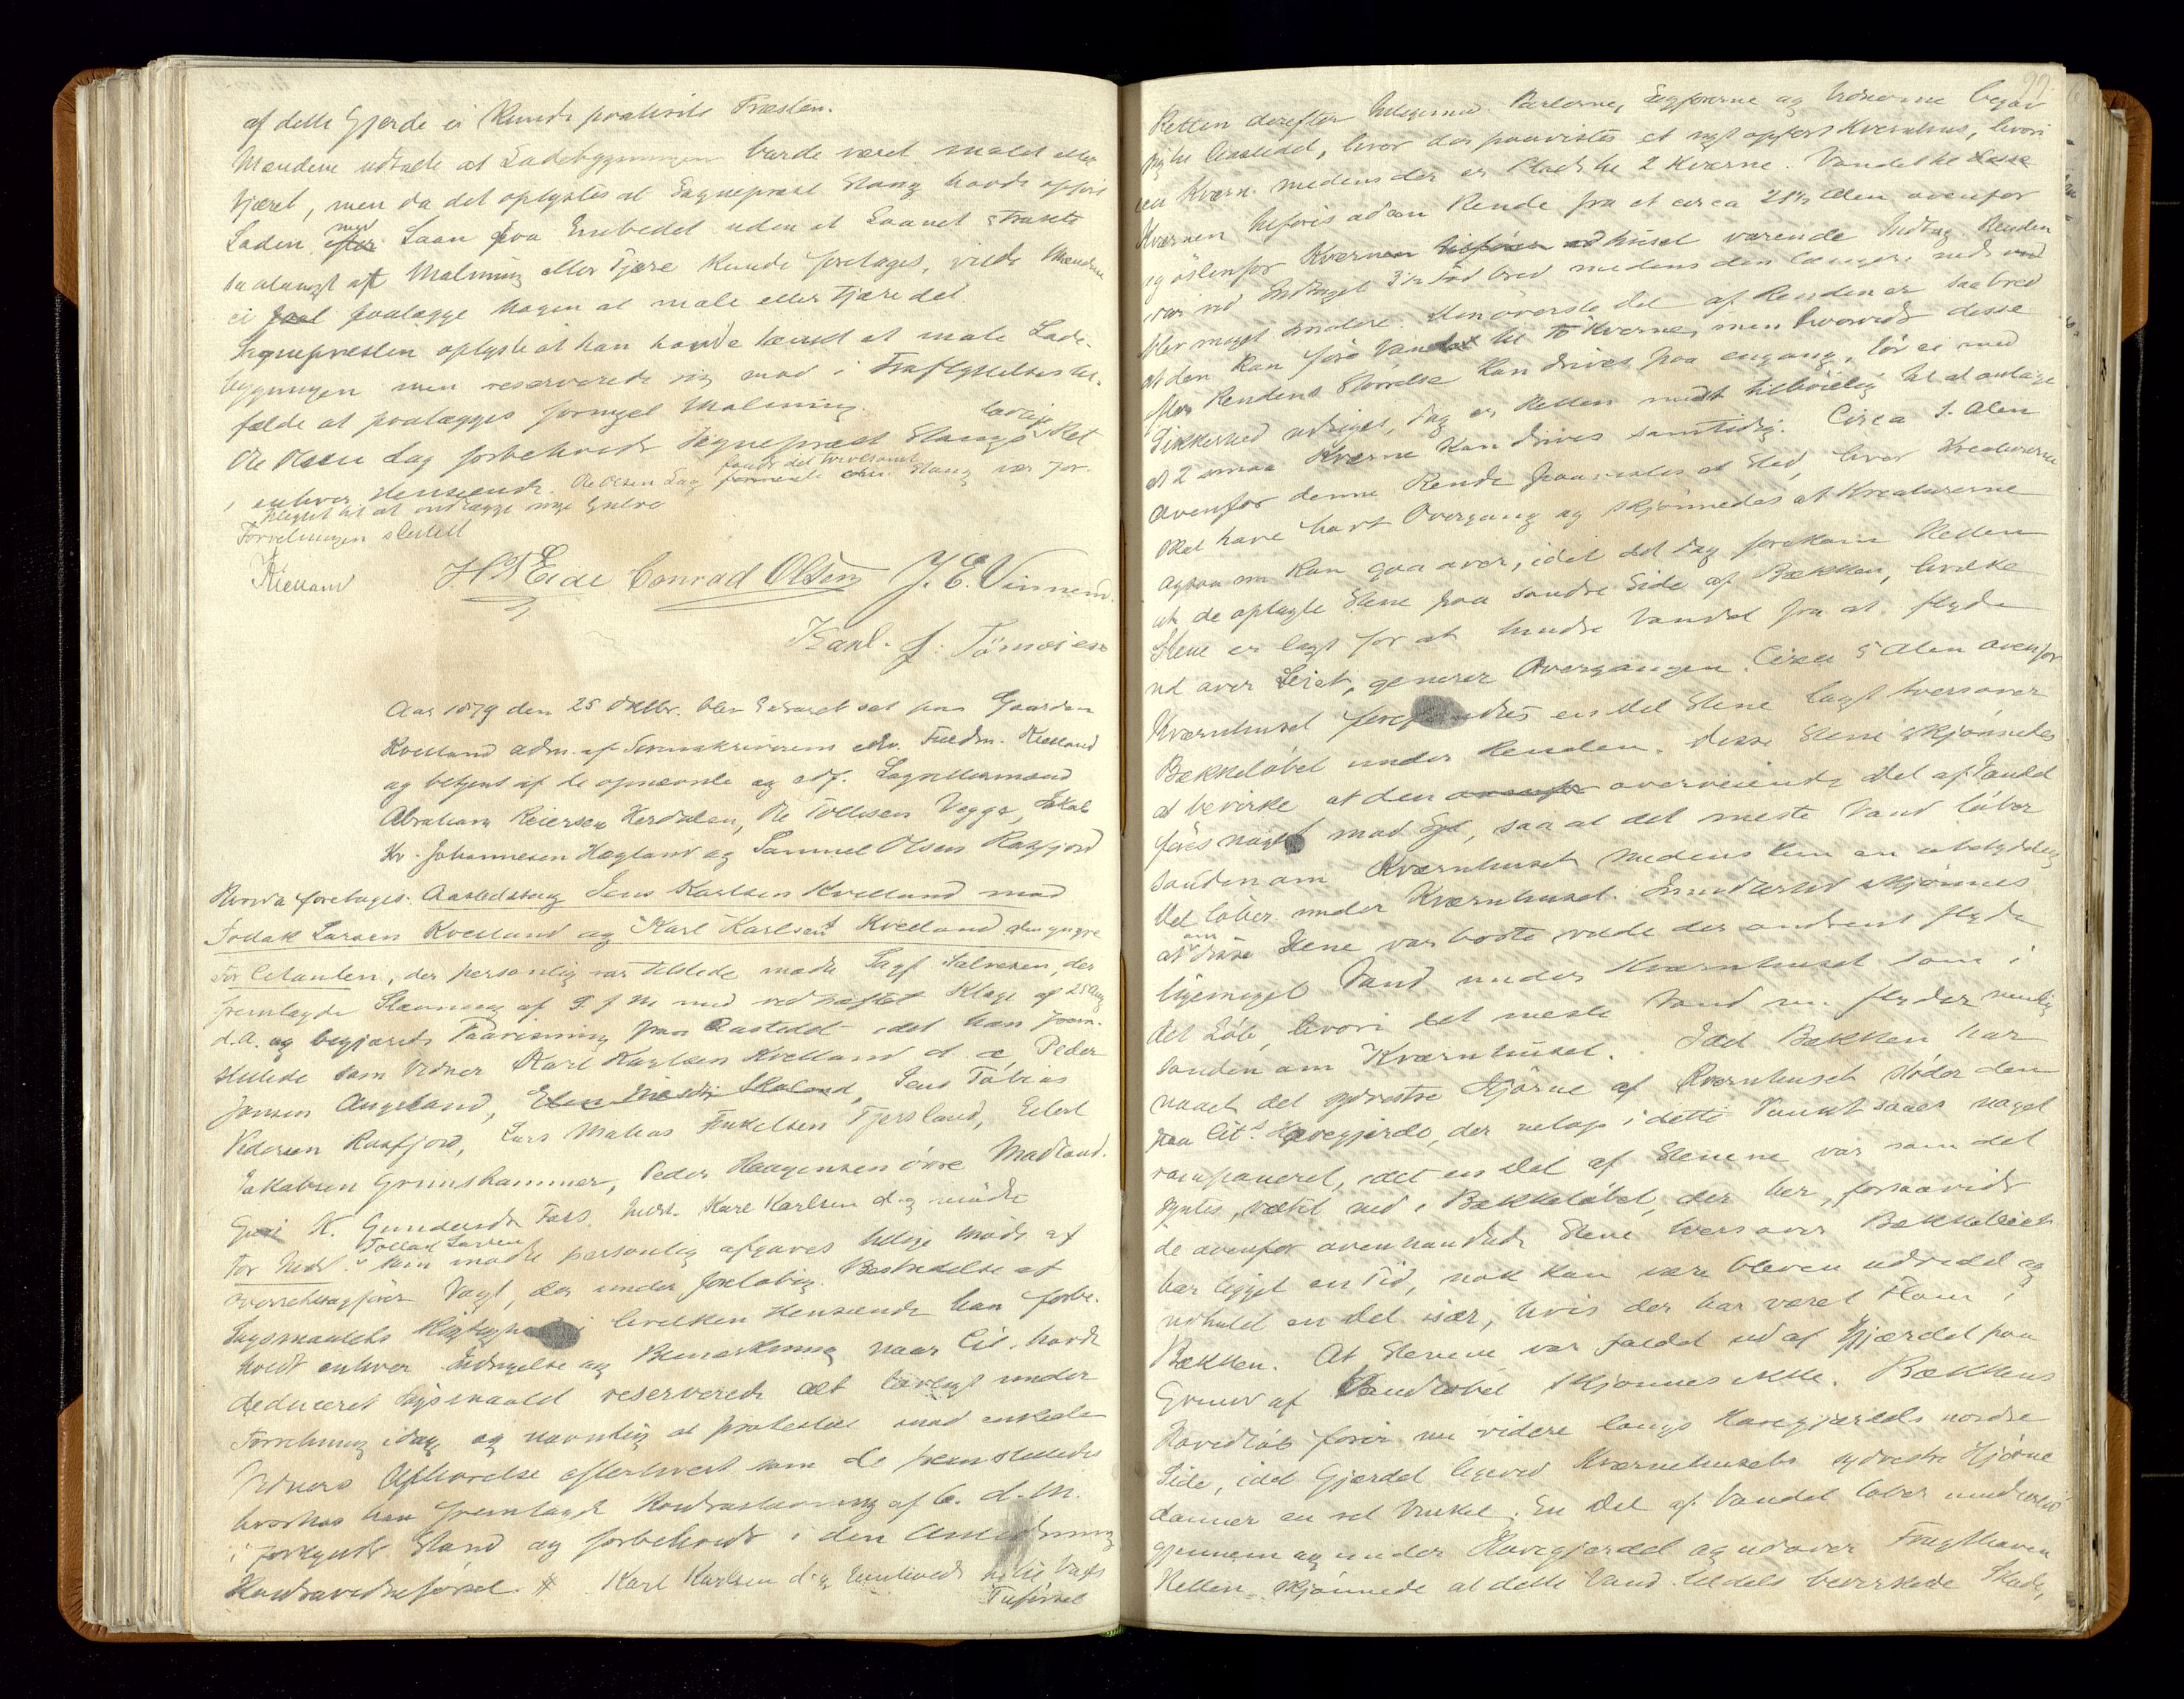 af dette Gjerde ei kunde paahvile Præsten.
Mændene udtalte at Ladebygningen burde været malet eller
tjæret, men da det oplystes at Sognepræst Stang havde opført
Laden med Laan fra Embedet uden at Laanet strakte
saalangt at Maling eller Tjære kunde foretages, vilde Mændene
ei paalægge nogen at male eller tjære det.
Sognepresten oplyste at han havde tænkt at male Lade-
bygningen men reserverede sig mod i Fraflyttelsestil-
fælde at paalægges fornyet Maling.
Ole Olsen Lag forbeholdt Sognepræst Stangs lovlige Ret
i enhver Henseende. Ole Olsen Lag fandt det tvivlsomt Stang var for-
pligtet til at indlægge nye Gulve
Forretningen sluttet
Kielland H N Eide Conrad Olsen J. E. Vinnem.
Karl. J. Tönnesen
Aar 1879 den 25 Oktbr. blev Extraret sat paa Gaarden
Kvelland adm. af Sorenskriverens edsv. Fuldm. Kielland
og betjent af de opnævnte og edf. Lagrettesmænd
Abraham Reiersen Herdalen, Ole Tollefsen Vegge, Jakob
Kr. Johannesen Hægland og Samuel Olsen Rasfjord
Hvorda foretages: Aastedssag Jens Karlsen Kvelland mod
Tollak Larsen Kvelland og Karl Karlsen Kvelland den yngre
For Citanten, der personlig var tilstede mødte Sagf. Salvesen, der
fremlagde Stævning af 9 f M med vedhæftet Klage af 25 Aug
d.A. og begjærede Paavisning paa Aastedet idet han frem-
stillede som Vidner Karl Karlsen Kvelland d. æ, Peder
Jensen Angeland, Jens Tobias
Pedersen Rasfjord, Lars Mathias Torkelsen Tjersland, Eilert
Jakobsen Grimshammer, Peder Haagensen övre Madland.
K. Gundersdtr Fors. Indst. Karl Karlsen d. y mödte
For Indst. Tollak Larsen som mödte personlig afgaves tillige Möde af
Overretssagfører Vogt, der under foreløbig Bestridelse af
Sagsmaalets Rigtighed i hvilken Henseende han forbe-
holdt enhver Indsigelse og Bemærkning naar Cit. havde
deduceret Sagsmaalet reserverede alt lovligt under
Forretning idag og navnlig at protestere mod enkelte
Vidners Afhørelse efterhvert som de fremstilledes
hvorhos han fremlagde Kontrastævning af 6. d. M.
i forkyndt Stand og forbeholdt i den Anledning
Kontravidneførsel # Karl Karlsen d. y henholdt sig til Vogts
Tilførsel
99
Retten derefter tilligemed Parterne, Sagførerne og Vidnerne begav
sig til Aastedet, hvor der paavistes et nyt opført Kvernhus, hvori
een Kværn medens der er Plads til 2 Kværne. Vandet til
Kværnen tilføres ad en Rende fra et circa 21½ Alen ovenfor
og östenfor Kværnhuset værende Indtag. Renden
var ved Indtaget 3½ Fod bred medens den længere ned
blev meget smalere. Den øverste Del af Renden er saa bred
at den kan føre Vandet til to Kværne, men hvorvidt disse
efter Rendens Størrelse kan drives paa engang, tör ei med
Sikkerhed udsiges, dog er Retten mest tilböielig til at antage
at 2 smaa Kværne kan drives samtidig. Circa 5 Alen
ovenfor denne Rende paavistes et Sted, hvor Kreaturerne
skal have havt Overgang og skjönnedes at Kreaturerne
ogsaa nu kan gaa over, idet det dog forekom Retten
at de oplagte Stene paa søndre Side af Bækken, hvilke
Stene er lagt for at hindre Vandet fra at flyde
ud over Leiet, generer Overgangen. Circa 5 Alen ovenfor
Kværnhuset forefandtes en del Stene lagt tversover
Bækkeløbet under Renden. Disse Stene skjønnedes
at bevirke at den overveiende Del af Vandet
føres noget mod Syd, saa at det meste Vand løber
söndenom Kværnhuset medens kun en ubetydelig
Del løber under Kværnhuset. Imidlertid skjönnes
at om disse Stene var borte vilde der omtrent flyde
ligemeget Vand under Kværnhuset som i
det Løb, hvori det meste Vand nu flyder nemlig
söndenom Kværnhuset. Idet Bækken har
naaet det sydvestre Hjørne af Kværnhuset støder den
paa Cit.s Havegjerde, der netop i dette Punkt saaes noget
ramponeret, idet en Del af Stenene var som det
syntes, væltet ned i Bækkeløbet, der her, forsaavidt
de ovenfor ommeldte Stene tversover Bækkeleiet
har ligget en Tid, nok kan være bleven udvidet og
udhulet en Del især, hvis der har været Flom i
Bækken. At Stenene var faldt ud af Gjærdet paa
Grund af Vandløbet skjønnes ikke. Bækkens
Hovedløb fører nu videre langs Havegjærdets nordre
Side, idet Gjærdet ligeved Kværnhusets sydvestre Hjörne
danner en ret Vinkel. En Del af Vandet løber imidlertid
gjennem og under Havegjærdet og udover Frugthaven
Retten skjønnede at dette Vand tildels bevirkede Skade,